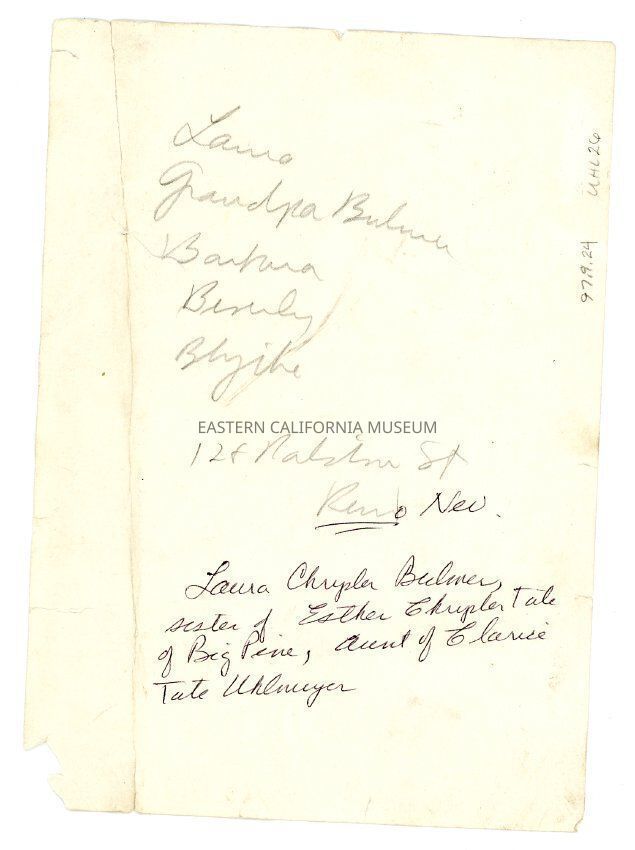 Laura
Grandpa Bulmer
Barbara
Beverly
Blythe
EASTERN CALIFORNIA MUSEUM
128 Ralston St
Reno Nev.
Laura Chrysler Bulmer,
sister of Esther Chrysler Tate
of Big Pine, aunt of Clarice
Tate Uhlmeyer
979.24 UHL26